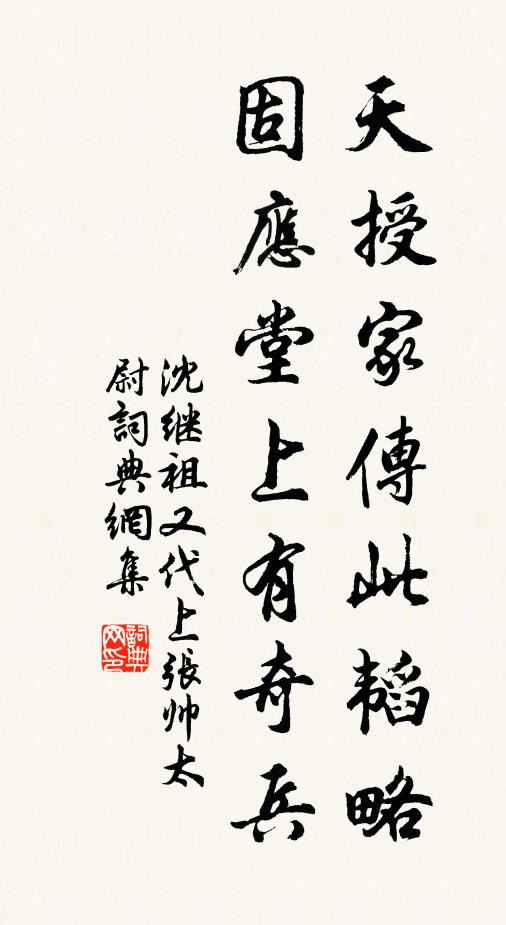 天授家傳此韜略
固應堂上有奇兵
沈继祖又代上張帅太
尉詞典網集
詞典网印